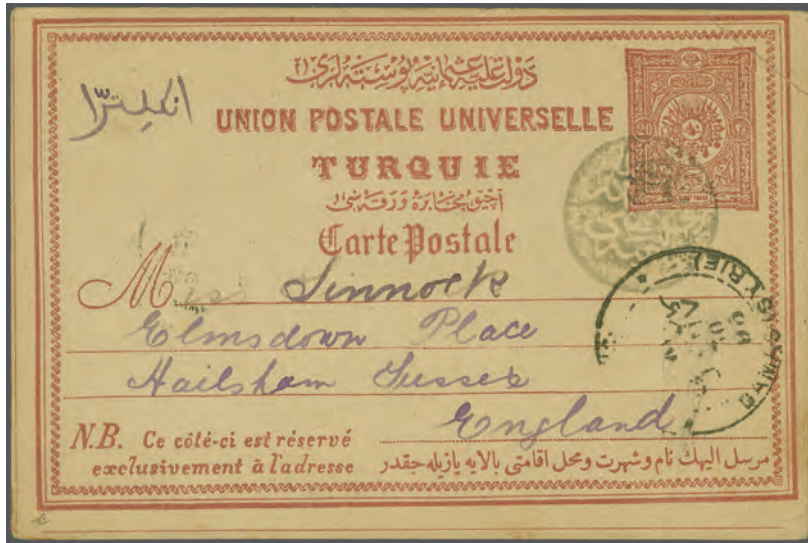 دولت علیه عثمانیه پوسته لری
انكلترا
UNION POSTALE UNIVERSELLE
TURQUIE
آچیق مخابره ورقه سی
Carte Postale
Miss Sinnock
Elmsdown Place
Hailsham Sussex
England
DAMAS (SYRIE)
N.B. Ce côté-ci est réservé
exclusivement à l'adresse
مرسل اليهك نام وشهرت ومحل اقامتى بالايه يازيله جقدر